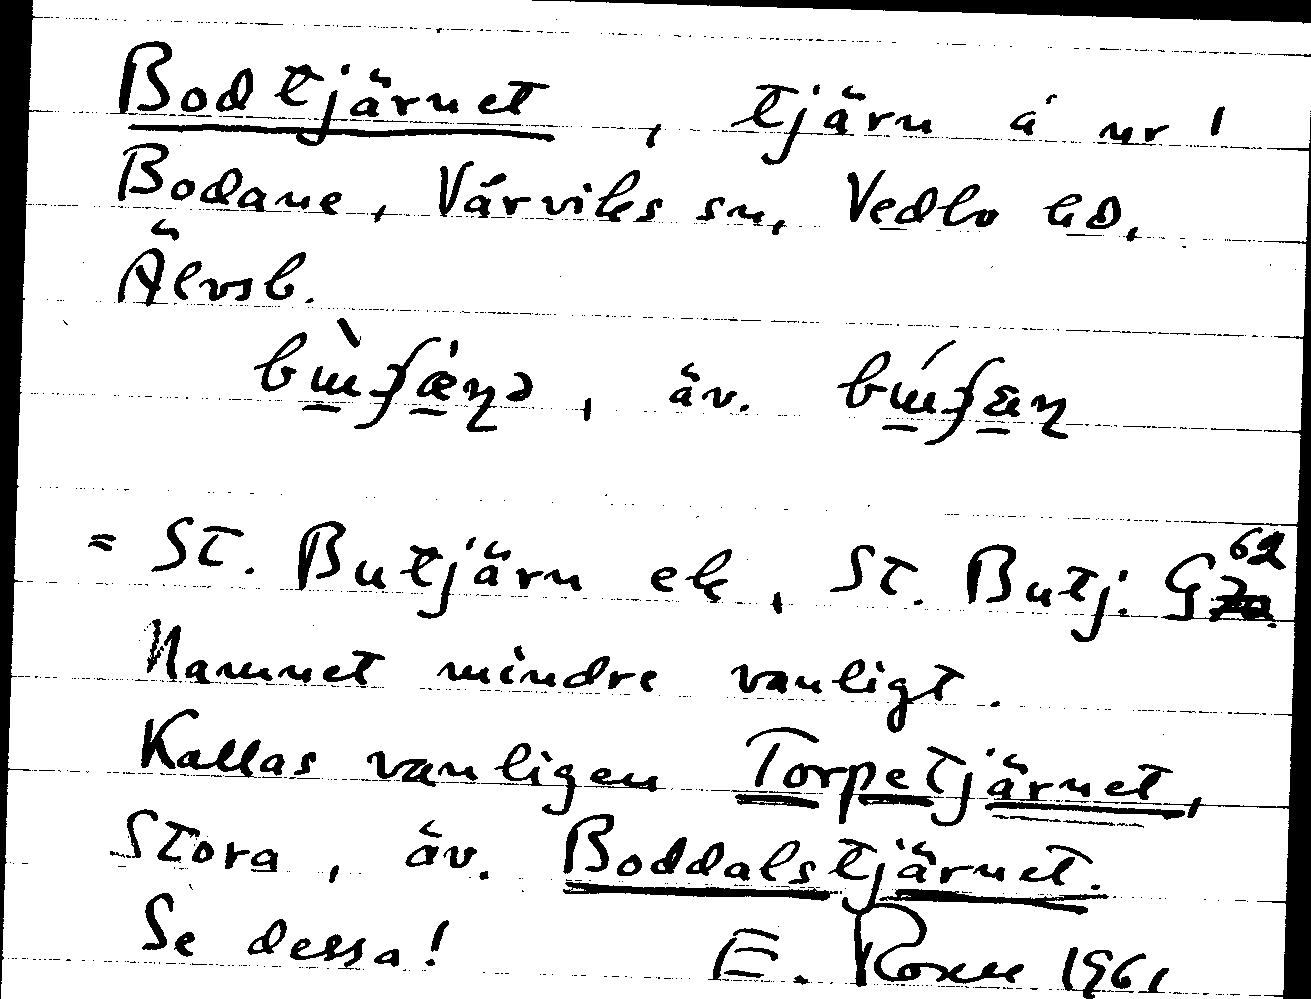 Bodtjärnet, tjärn å nr 1
Bodane, Vårviks sn, Vedbo hd,
Älvsb.
äv.
= St. Butjärn ek, St. Butj. G 62
Namnet mindre vanligt.
Kallas vanligen Torpetjärnet,
Stora, äv. Boddalstjärnet.
Se dessa! E. Rosell 1961